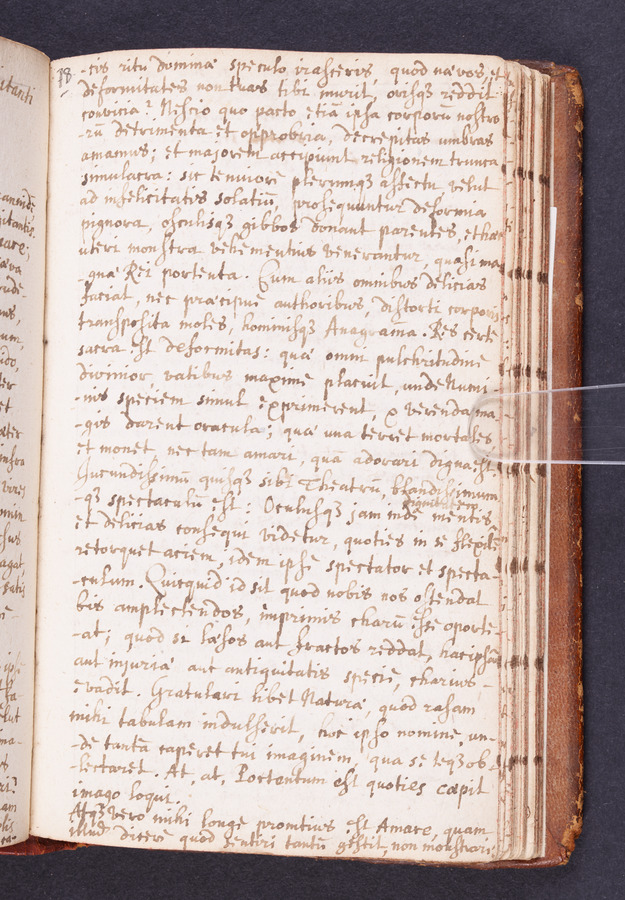 78
-cis ritu dominæ speculo irasceris, quod nævos, et
deformitates non tuas tibi inurit, orisq3 reddit
convicia? Nescio quo pacto etiā ipsa corporū nostro
-rū detrimenta et opprobria, decrepitas umbras
amamus; et majorem accipiunt religionem trunca
simulacra: sic tenuiore plerumq3 affectu, velut
ad infelicitatis solatiū, prosequuntur deformia
pignora, osculisq3 gibbos donant parentes, et hæc
uteri monstra vehementius venerantur, quasi ma
-gnæ Rei portenta. Cum aliis omnibus delicias
faciat, nec præcipue authoribus, distorti corporis
transposita moles, hominisq3 Anagram̄a. Res certe
sacra est deformitas: quæ omni pulchritudine
divinior, vatibus maxime placuit, unde Numi-
-nis speciem simul exprimerent, & verenda ma
-gis darent oracula; quæ una terret mortales
et monet, nec tam amari, quā adorari digna est.
Jucundissimū quisq3 sibi Theatrū, blandissimum
-q3 spectaculū est: Oculusq3 jam inde mentis
et delicias consequi videtur, quoties in se flexilē
retorquet aciem, idem ipse spectator et specta-
-culum. Quicquid id sit quod nobis nos ostendat
bis amplectendos, imprimis charū esse oporte
-at; quod si læsos aut fractos reddat, hac ipsā
aut injuriâ aut antiquitatis specie, charius
evadit. Gratulari libet Naturæ, quod rasam
mihi tabulam indulserit, hoc ipso nomine, un-
-de tantā caperet tui imaginem, qua se teq3 ob
-lectaret. At, at, Portentum est quoties cœpit
imago loqui.
Atq3 vero mihi longe promtius est Amare, quam
illud dicere quod sentiri tantū gestit, non monstrari: